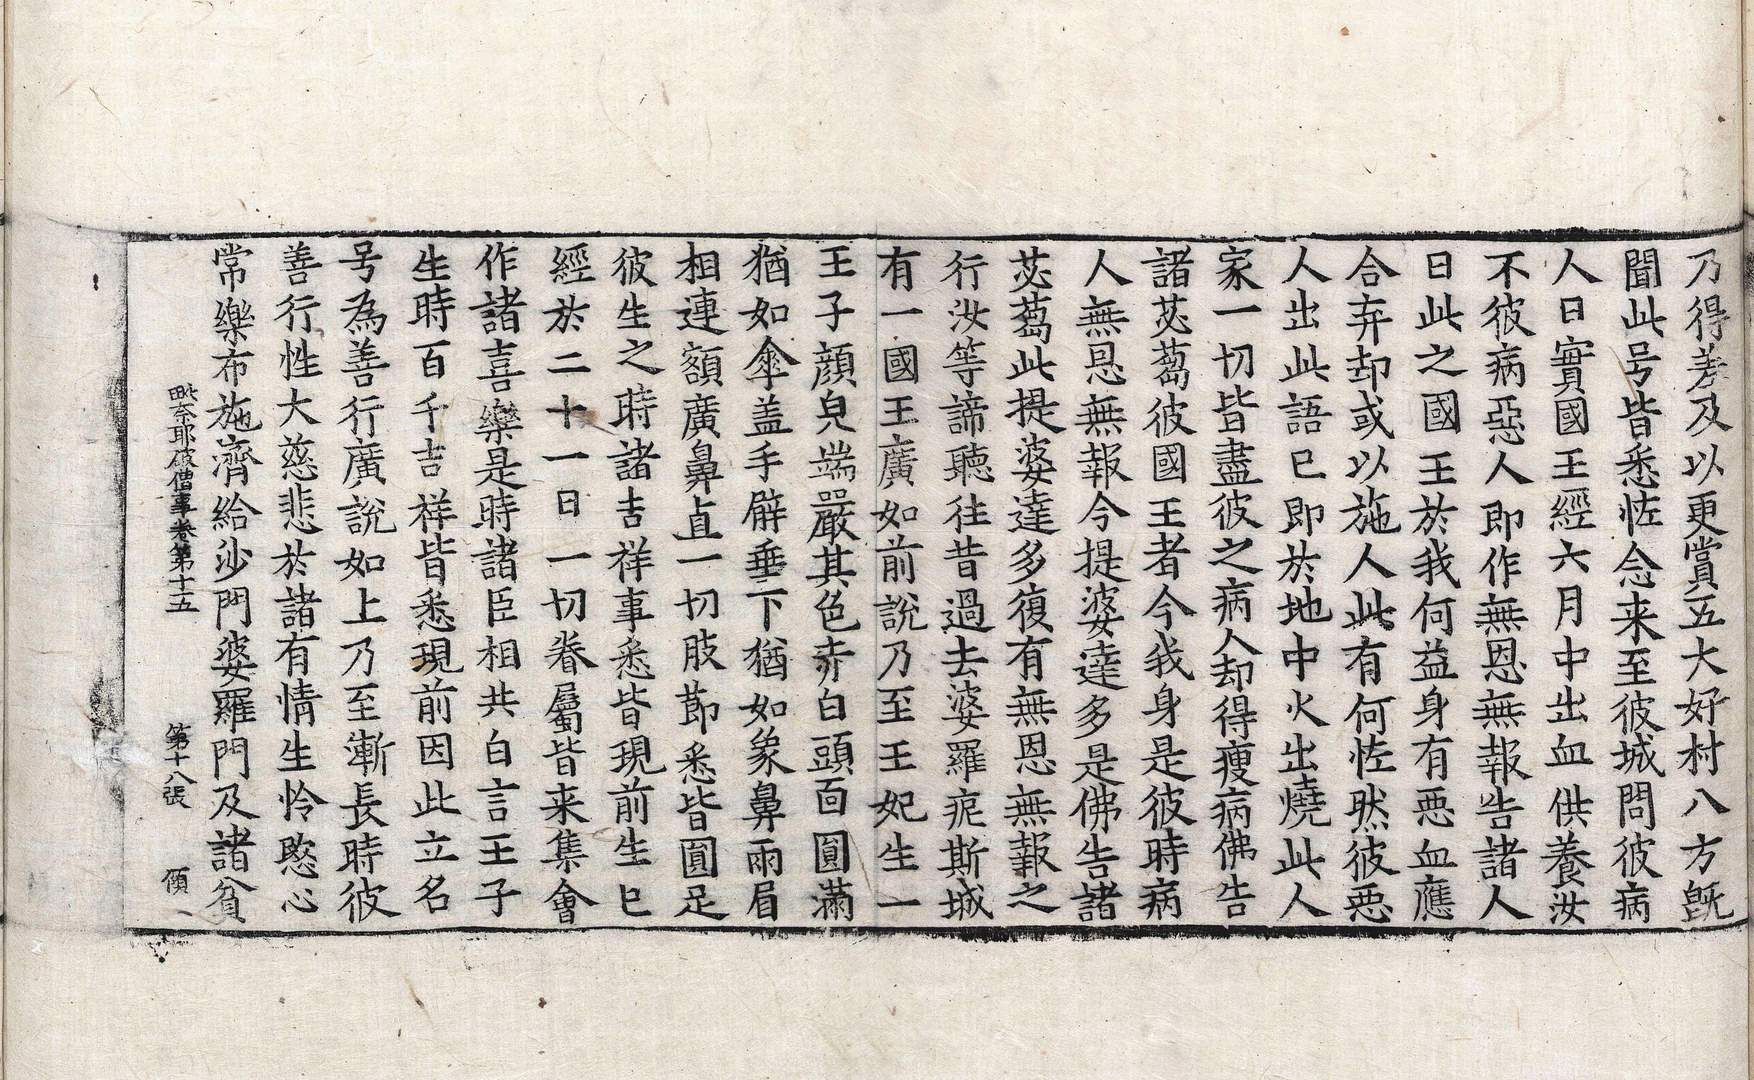 乃得差及以更賞五大好村八方旣
聞此号皆悉恠念来至彼城問彼病
人曰實國王經六月中出血供養汝
不彼病惡人即作無恩無報告諸人
曰此之國王於我何益身有惡血應
合弃却或以施人此有何恠然彼惡
人出此語已即於地中火出燒此人
家一切皆盡彼之病人却得瘦病佛告
諸苾蒭彼國王者今我身是彼時病
人無恩無報今提婆達多是佛告諸
苾蒭此提婆達多復有無恩無報之
行汝等諦聽往昔過去婆羅痆斯城
有一國王廣如前說乃至王妃生一
王子顔皃端嚴其色赤白頭面圓滿
猶如傘盖手臂垂下猶如象鼻兩眉
相連額廣鼻直一切肢莭悉皆圓足
彼生之時諸吉祥事悉皆現前生已
經於二十一日一切眷屬皆来集會
作諸喜樂是時諸臣相共白言王子
生時百千吉祥皆悉現前因此立名
号為善行廣說如上乃至漸長時彼
善行性大慈悲於諸有情生怜愍心
常樂布施濟給沙門婆羅門及諸貧
毗奈耶破僧事卷第十五 第十八張 傾